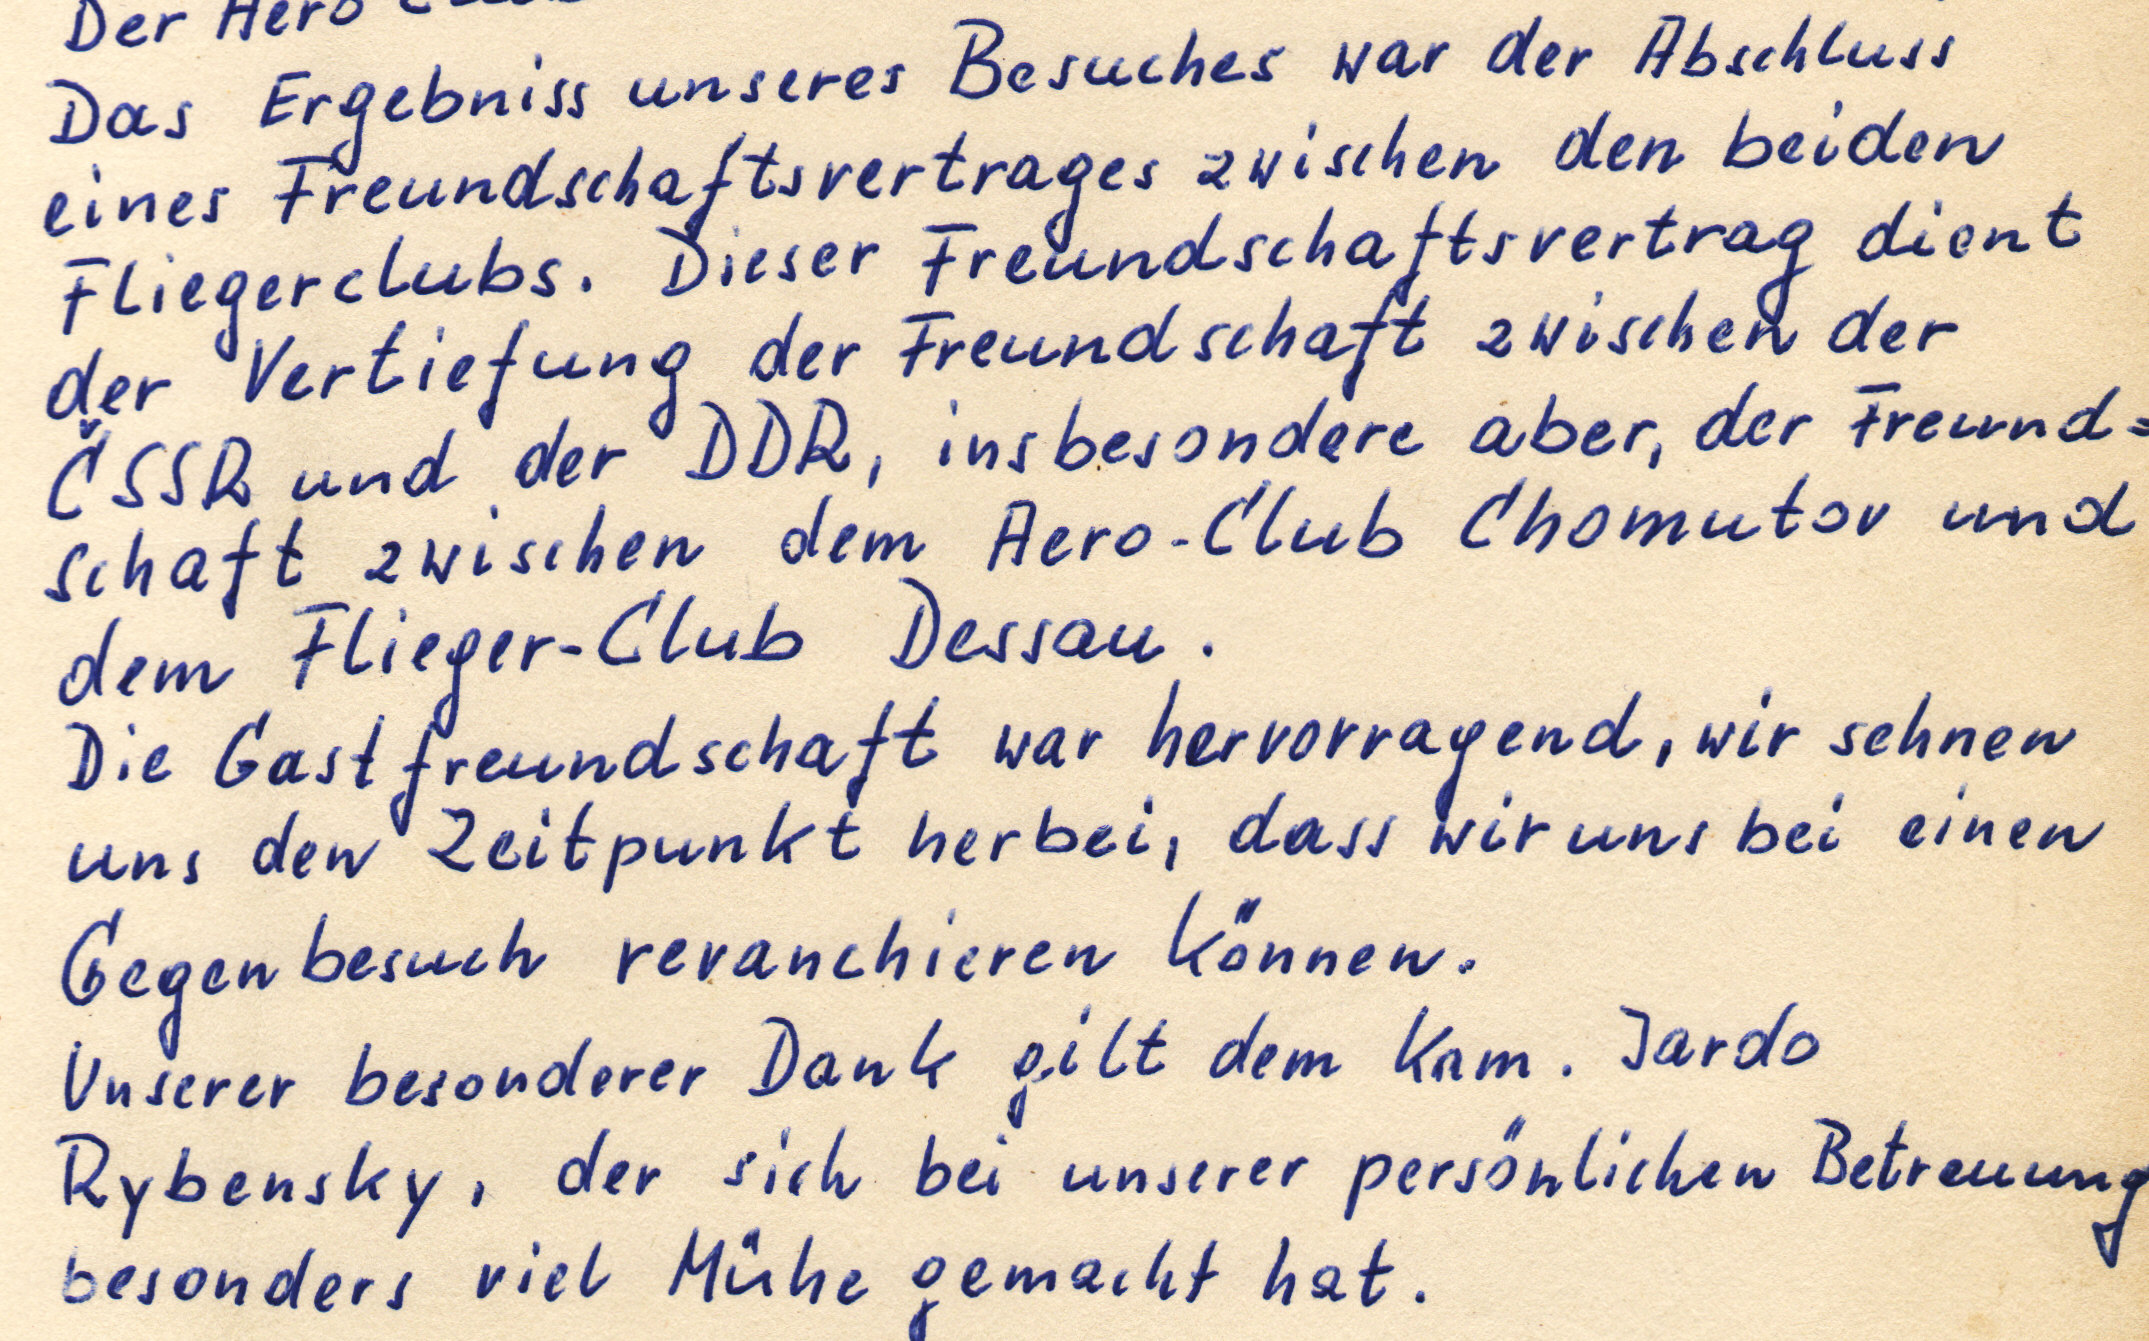 Der Aero Club
Das Ergebniss unseres Besuches war der Abschluss
eines Freundschaftsvertrages zwischen den beiden
Fliegerclubs. Dieser Freundschaftsvertrag dient
der Vertiefung der Freundschaft zwischen der
ČSSR und der DDR, insbesondere aber, der Freund=
schaft zwischen dem Aero-Club Chomutov und
dem Flieger-Club Dessau.
Die Gastfreundschaft war hervorragend, wir sehnen
uns den Zeitpunkt herbei, dass wir uns bei einen
Gegenbesuch revanchieren können.
Unserer besonderer Dank gilt dem Kam. Jardo
Rybensky, der sich bei unserer persönlichen Betreuung
besonders viel Mühe gemacht hat.